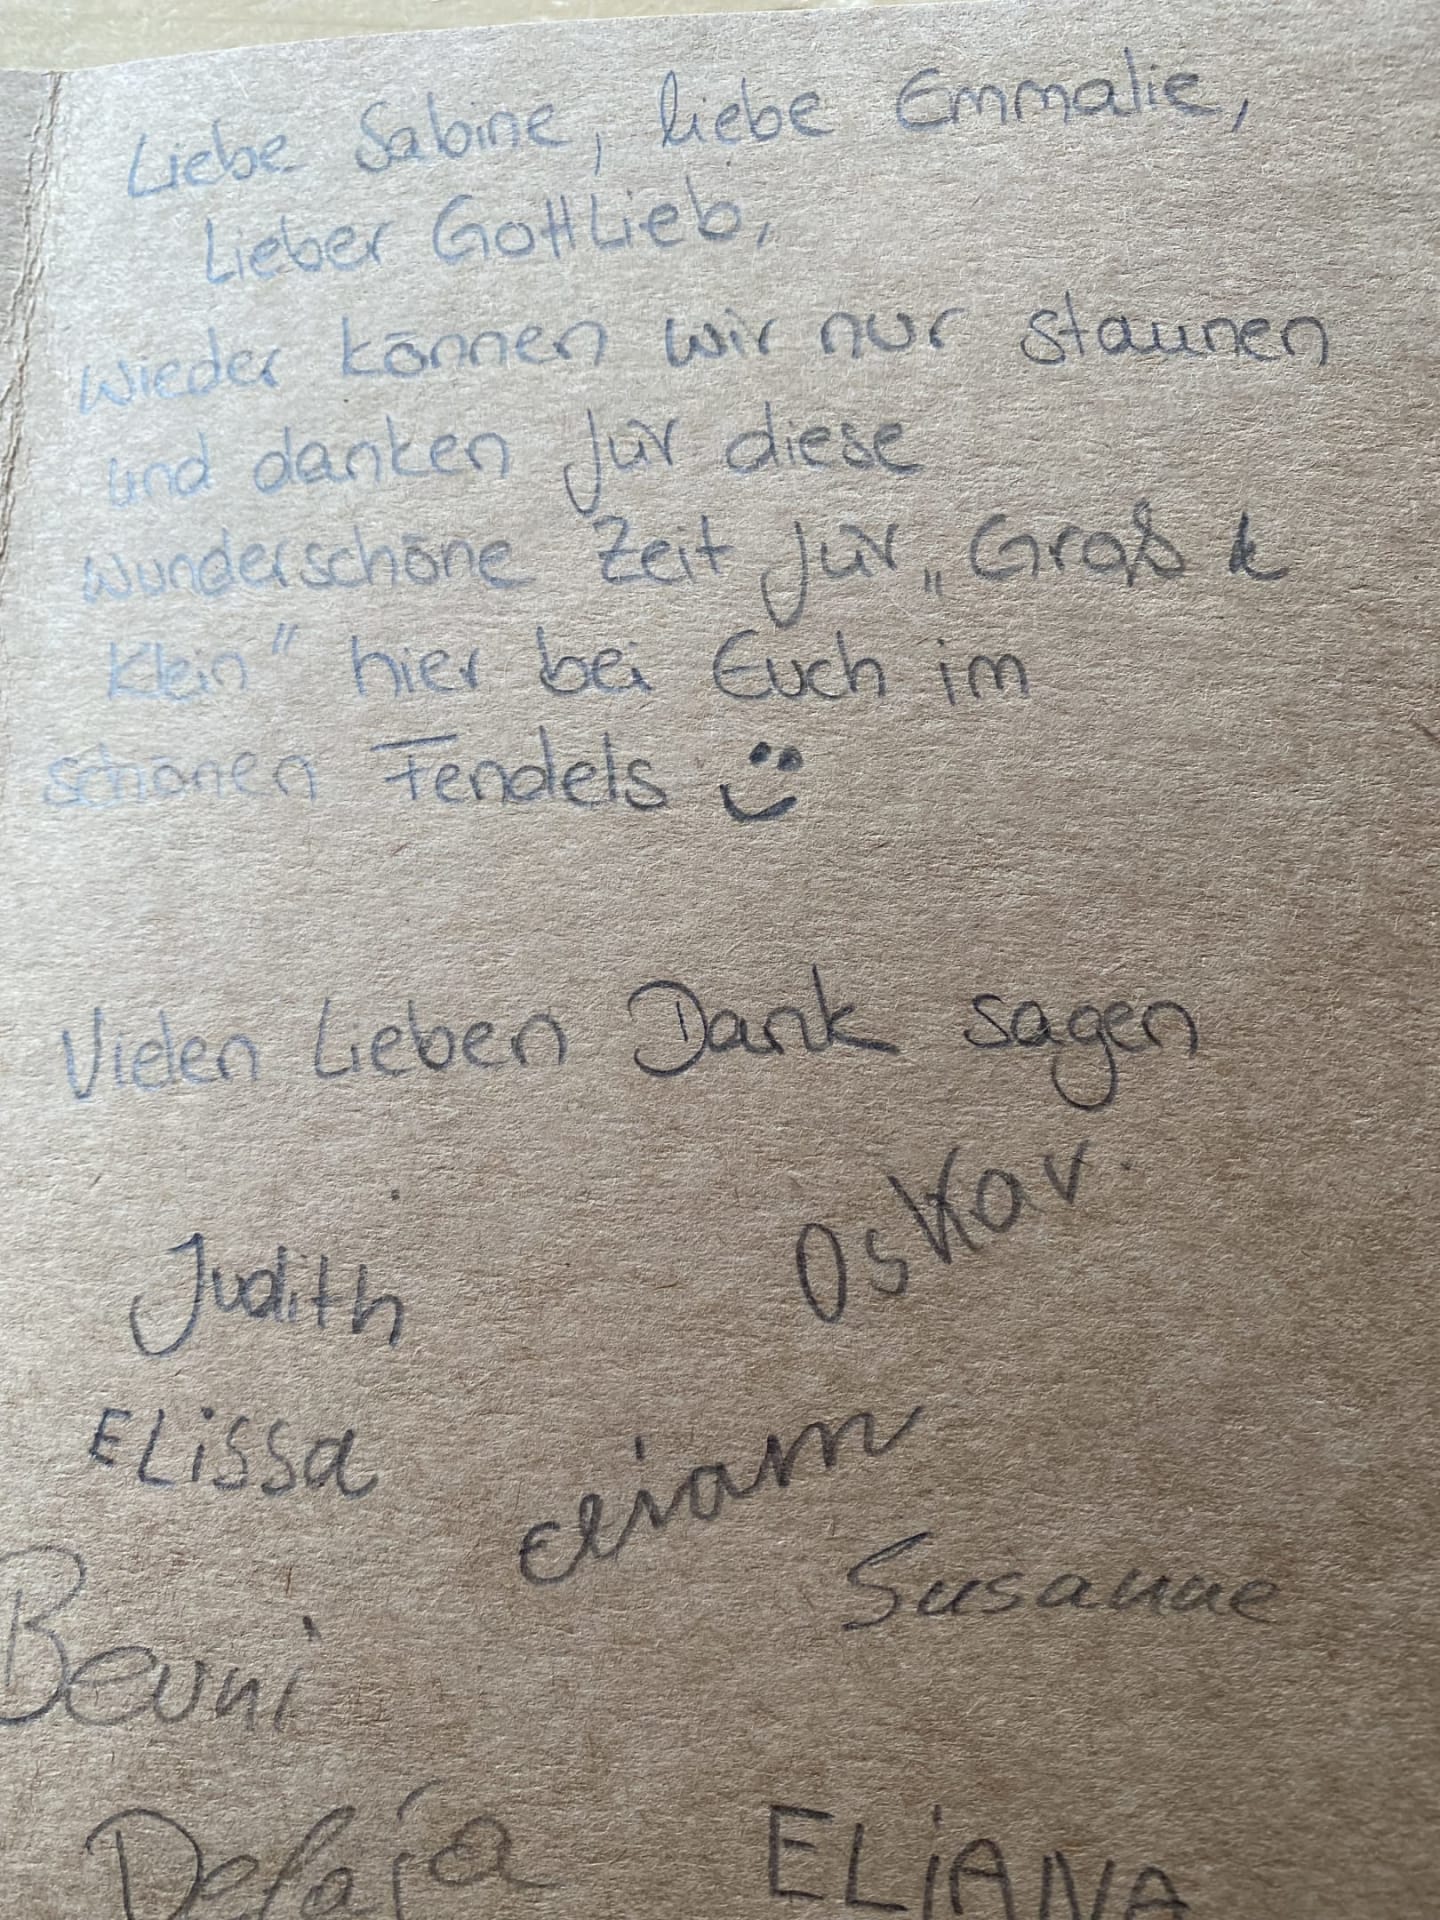 Liebe Sabine, liebe Emmalie,
Lieber Gottlieb,
wieder können wir nur staunen
und danken für diese
wunderschöne Zeit für „Groß &
Klein" hier bei Euch im
schönen Fendels
Vielen Lieben Dank sagen
Oskar.
Judith
ELissa
eliam
Susanne
Benni
Delaia
ELiANA